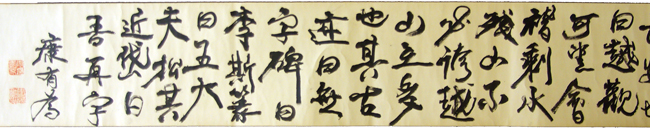 曰越觀
可望會
稽剩水
殘山不
必誇越
山之多
也其古
迹曰無
字碑曰
李斯篆
曰五大
夫松其
近岱曰
再字
康有為